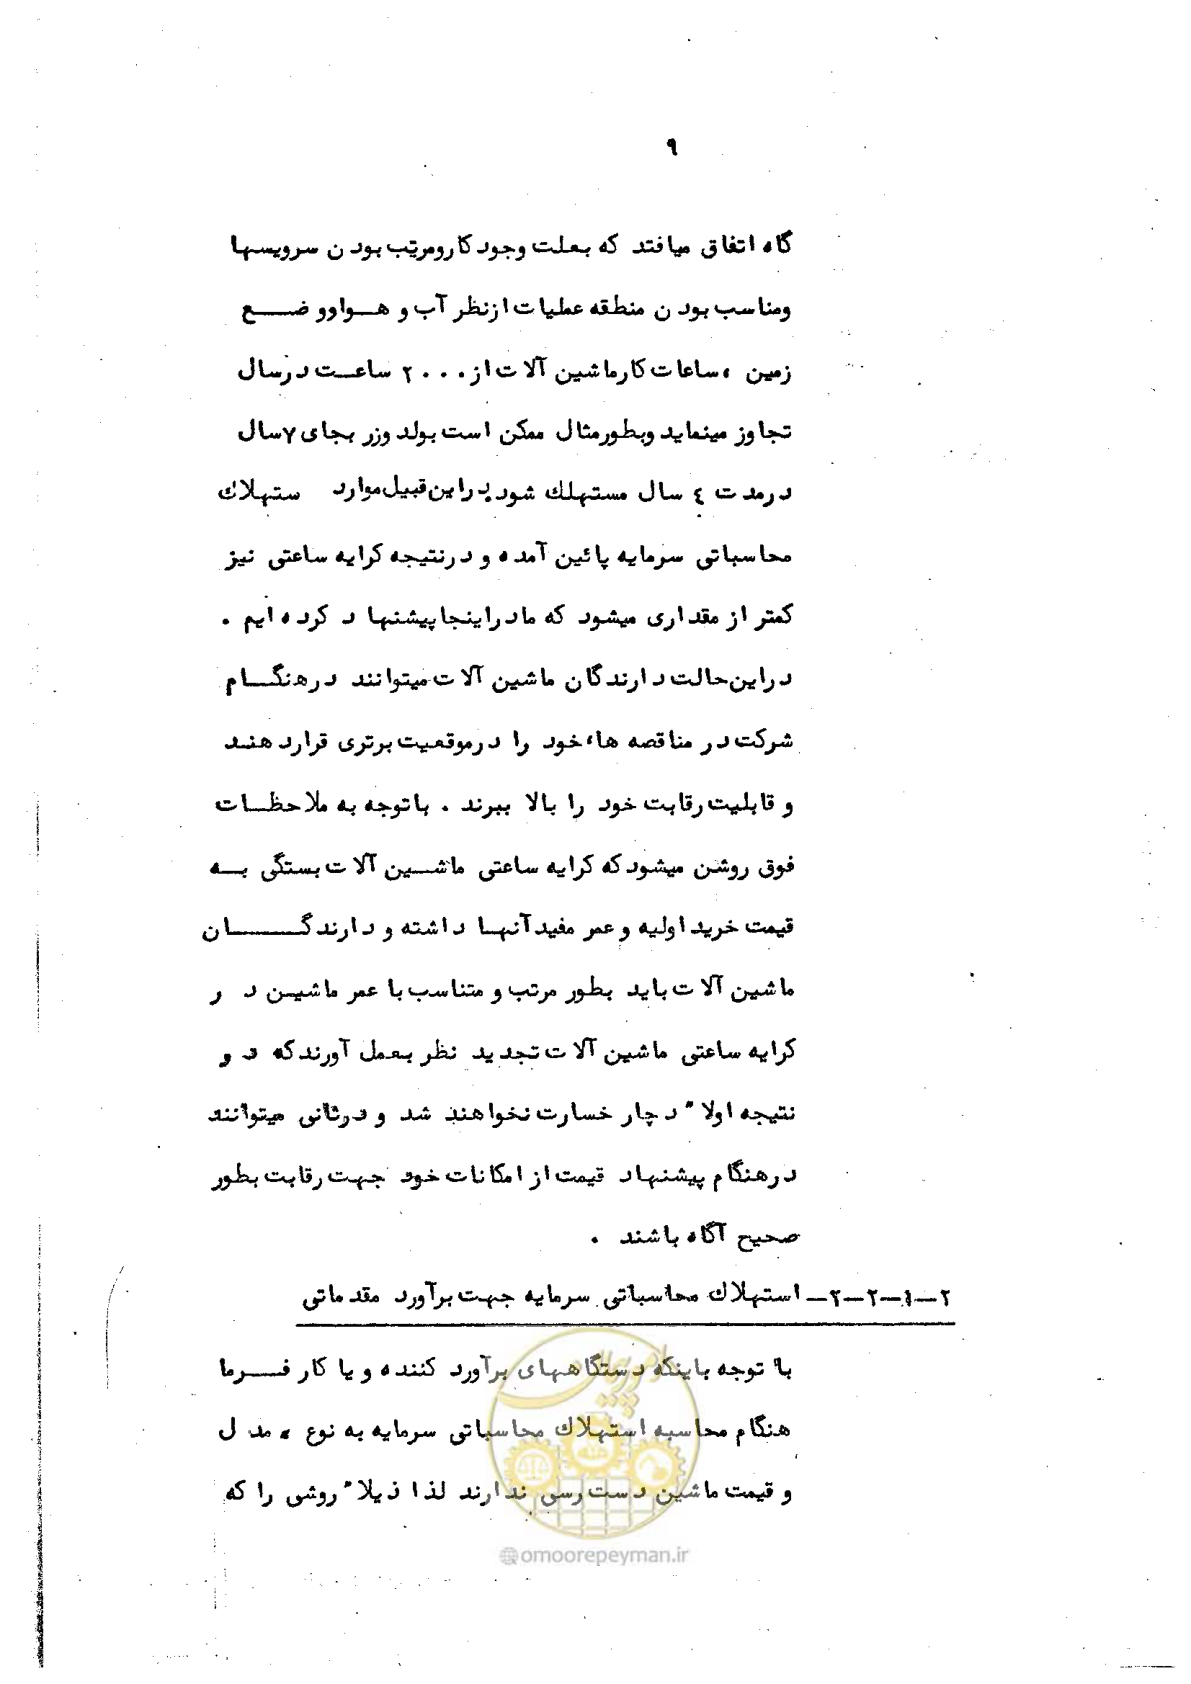 ۹
گاه اتفاق میافتد که بعلت وجود کار و مرتب بودن سرویسها
ومناسب بودن منطقه عملیات ازنظر آب و هـــوا و وضـــــع
زمین ، ساعات کار ماشین آلات از ۲۰۰۰ ساعــت در سال
تجاوز مینماید وبطور مثال ممکن است بولد وزر بجای ۷ سال
در مدت ٤ سال مستهلك شود در این قبیل موارد ستهلاك
محاسباتی سرمایه پائین آمده و در نتیجه کرایه ساعتی نیز
کمتر از مقداری میشود که ما در اینجا پیشنهاد کرده ایم .
در این حالت دارندگان ماشین آلات میتوانند در هنگـــام
شرکت در مناقصه ها، خود را در موقعیت برتری قرار دهند
و قابلیت رقابت خود را بالا ببرند . با توجه به ملاحظــات
فوق روشن میشود که کرایه ساعتی ماشــین آلات بستگی بــه
قیمت خرید اولیه و عمر مفید آنهــا داشته و دارندگـــــــان
ماشین آلات باید بطور مرتب و متناسب با عمر ماشیـن در
کرایه ساعتی ماشین آلات تجدید نظر بعمل آورند که در
نتیجه اولا" دچار خسارت نخواهند شد و در ثانی میتوانند
در هنگام پیشنهاد قیمت از امکانات خود جهت رقابت بطور
صحیح آگاه باشند .
۲-۱-۲-۲- استهلاك محاسباتی سرمایه جهت برآورد مقدماتی
با توجه باینکه دستگاههای برآورد کننده و یا کار فــرما
هنگام محاسبه استهلاك محاسباتی سرمایه به نوع ، مدل
و قیمت ماشین دست رسی ندارند لذا ذیلا" روشی را که
امور پیمان
@omoorepeyman.ir